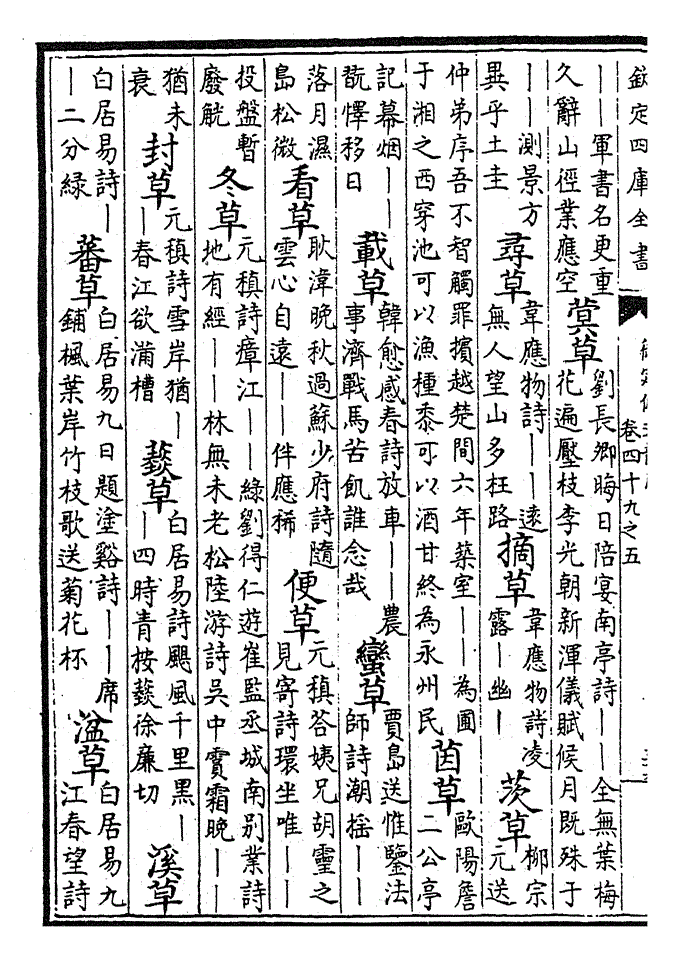 欽定四庫全書
卷四十九之五
——軍書名更重
久辭山徑業應空
蓂草
劉長卿晦日陪宴南亭詩——全無葉梅
花遍壓枝李光朝新渾儀賦候月既殊于
——測景方
異乎土圭
尋草
韋應物詩——遠
無人望山多枉路
摘草
韋應物詩凌
露—幽—
茨草
柳宗
元送
仲弟序吾不智觸罪擯越楚間六年築室——為圃
于湘之西穿池可以漁種黍可以酒甘終為永州民
茵草
歐陽詹
二公亭
記幕烟——
翫懌移日
載草
韓愈感春詩放車——農
事濟戰馬苦飢誰念哉
蠻草
賈島送惟鑒法
師詩潮搖——
落月濕
島松微
看草
耿湋晚秋過蘇少府詩隨
雲心自遠——伴應稀
便草
元稹答姨兄胡靈之
見寄詩環坐唯——
投盤暫
廢觥
冬草
元稹詩瘴江——綠劉得仁遊崔監丞城南别業詩
地有經——林無未老松陸游詩吳中霣霜晚——
猶未
衰
封草
元稹詩雪岸猶—
—春江欲滿槽
䕭草
白居易詩颶風千里黑—
—四時青按䕭徐廉切
溪草
白居易詩—
—二分綠
蕃草
白居易九日題塗谿詩——席
鋪楓葉岸竹枝歌送菊花杯
湓草
白居易九
江春望詩